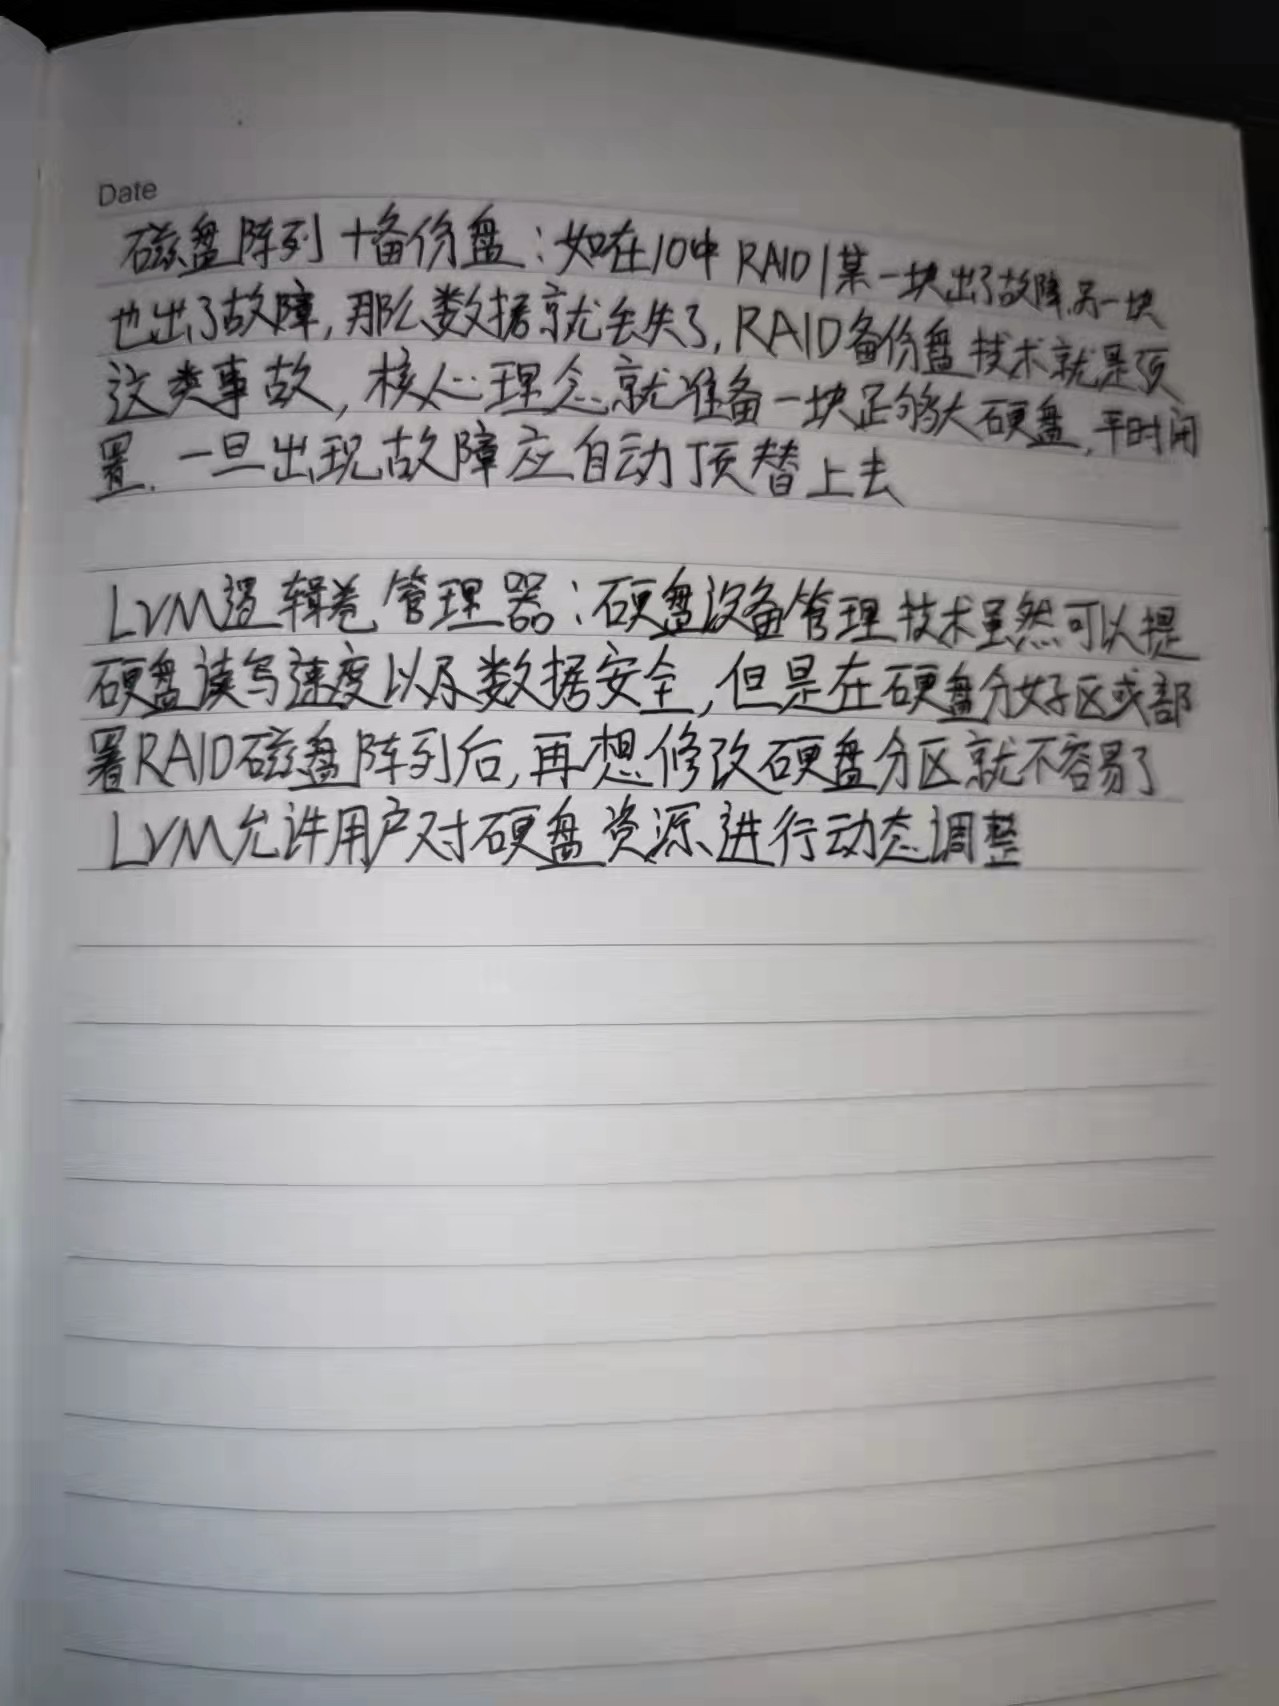 Date
磁盘阵列+备份盘：如在10中RAID1某一块出了故障,另一块
也出了故障,那么数据就丢失了,RAID备份盘技术就是预
这类事故,核心理念就准备一块足够大硬盘,平时闲
置.一旦出现故障应自动顶替上去
LVM逻辑卷管理器：硬盘设备管理技术虽然可以提
硬盘读写速度以及数据安全,但是在硬盘分好区或部
署RAID磁盘阵列后,再想修改硬盘分区就不容易了
LVM允许用户对硬盘资源进行动态调整